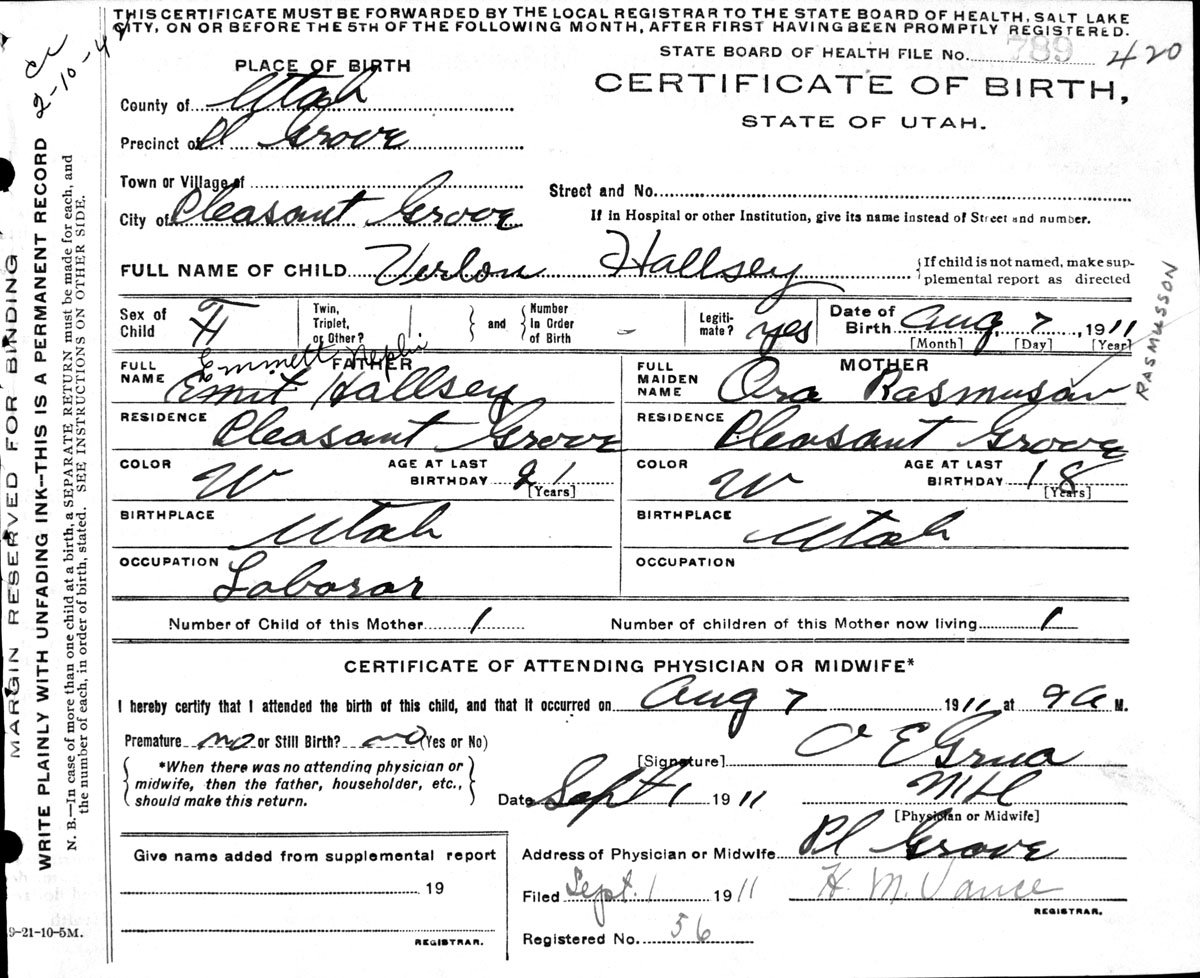 THIS CERTIFICATE MUST BE FORWARDED BY THE LOCAL REGISTRAR TO THE STATE BOARD OF HEALTH, SALT LAKE
CITY, ON OR BEFORE THE 5TH OF THE FOLLOWING MONTH, AFTER FIRST HAVING BEEN PROMPTLY REGISTERED.
STATE BOARD OF HEALTH FILE No. 789 420
2-10-4
PLACE OF BIRTH
CERTIFICATE OF BIRTH,
STATE OF UTAH.
County of Utah
Precinct of Pl Grove
Town or Village of
Street and No.
City of Pleasant Grove
If in Hospital or other Institution, give its name instead of Street and number.
FULL NAME OF CHILD Verlon Hallsey
{If child is not named, make sup-
plemental report as directed
Sex of Child F
Twin, Triplet, or Other? } and { Number In Order of Birth -
Legiti-mate? yes
Date of Birth Aug 7, 1911
[Month] [Day] [Year]
RASMUSSON
FATHER
FULL NAME Emit Hallsey
Emmett Nephi
MOTHER
FULL MAIDEN NAME Ora Rasmuson
RESIDENCE Pleasant Grove
RESIDENCE Pleasant Grove
COLOR W AGE AT LAST BIRTHDAY 21 [Years]
COLOR W AGE AT LAST BIRTHDAY 18 [Years]
BIRTHPLACE Utah
BIRTHPLACE Utah
OCCUPATION Laborar
OCCUPATION
Number of Child of this Mother 1 Number of children of this Mother now living 1
CERTIFICATE OF ATTENDING PHYSICIAN OR MIDWIFE*
I hereby certify that I attended the birth of this child, and that it occurred on Aug 7 1911 at 9 A M.
Premature no or Still Birth? no (Yes or No)
{ *When there was no attending physician or
midwife, then the father, householder, etc.,
should make this return. }
[Signature] O E Grua
Date Sept 1 1911
[Physician or Midwife]
Give name added from supplemental report
19
REGISTRAR.
Address of Physician or Midwife Pl Grove
Filed Sept. 1 1911 H. M. Vance
REGISTRAR.
Registered No. 56
9-21-10-5M.
MARGIN RESERVED FOR BINDING
WRITE PLAINLY WITH UNFADING INK--THIS IS A PERMANENT RECORD
N. B.—In case of more than one child at a birth, a SEPARATE RETURN must be made for each, and
the number of each, in order of birth, stated. SEE INSTRUCTIONS ON OTHER SIDE.